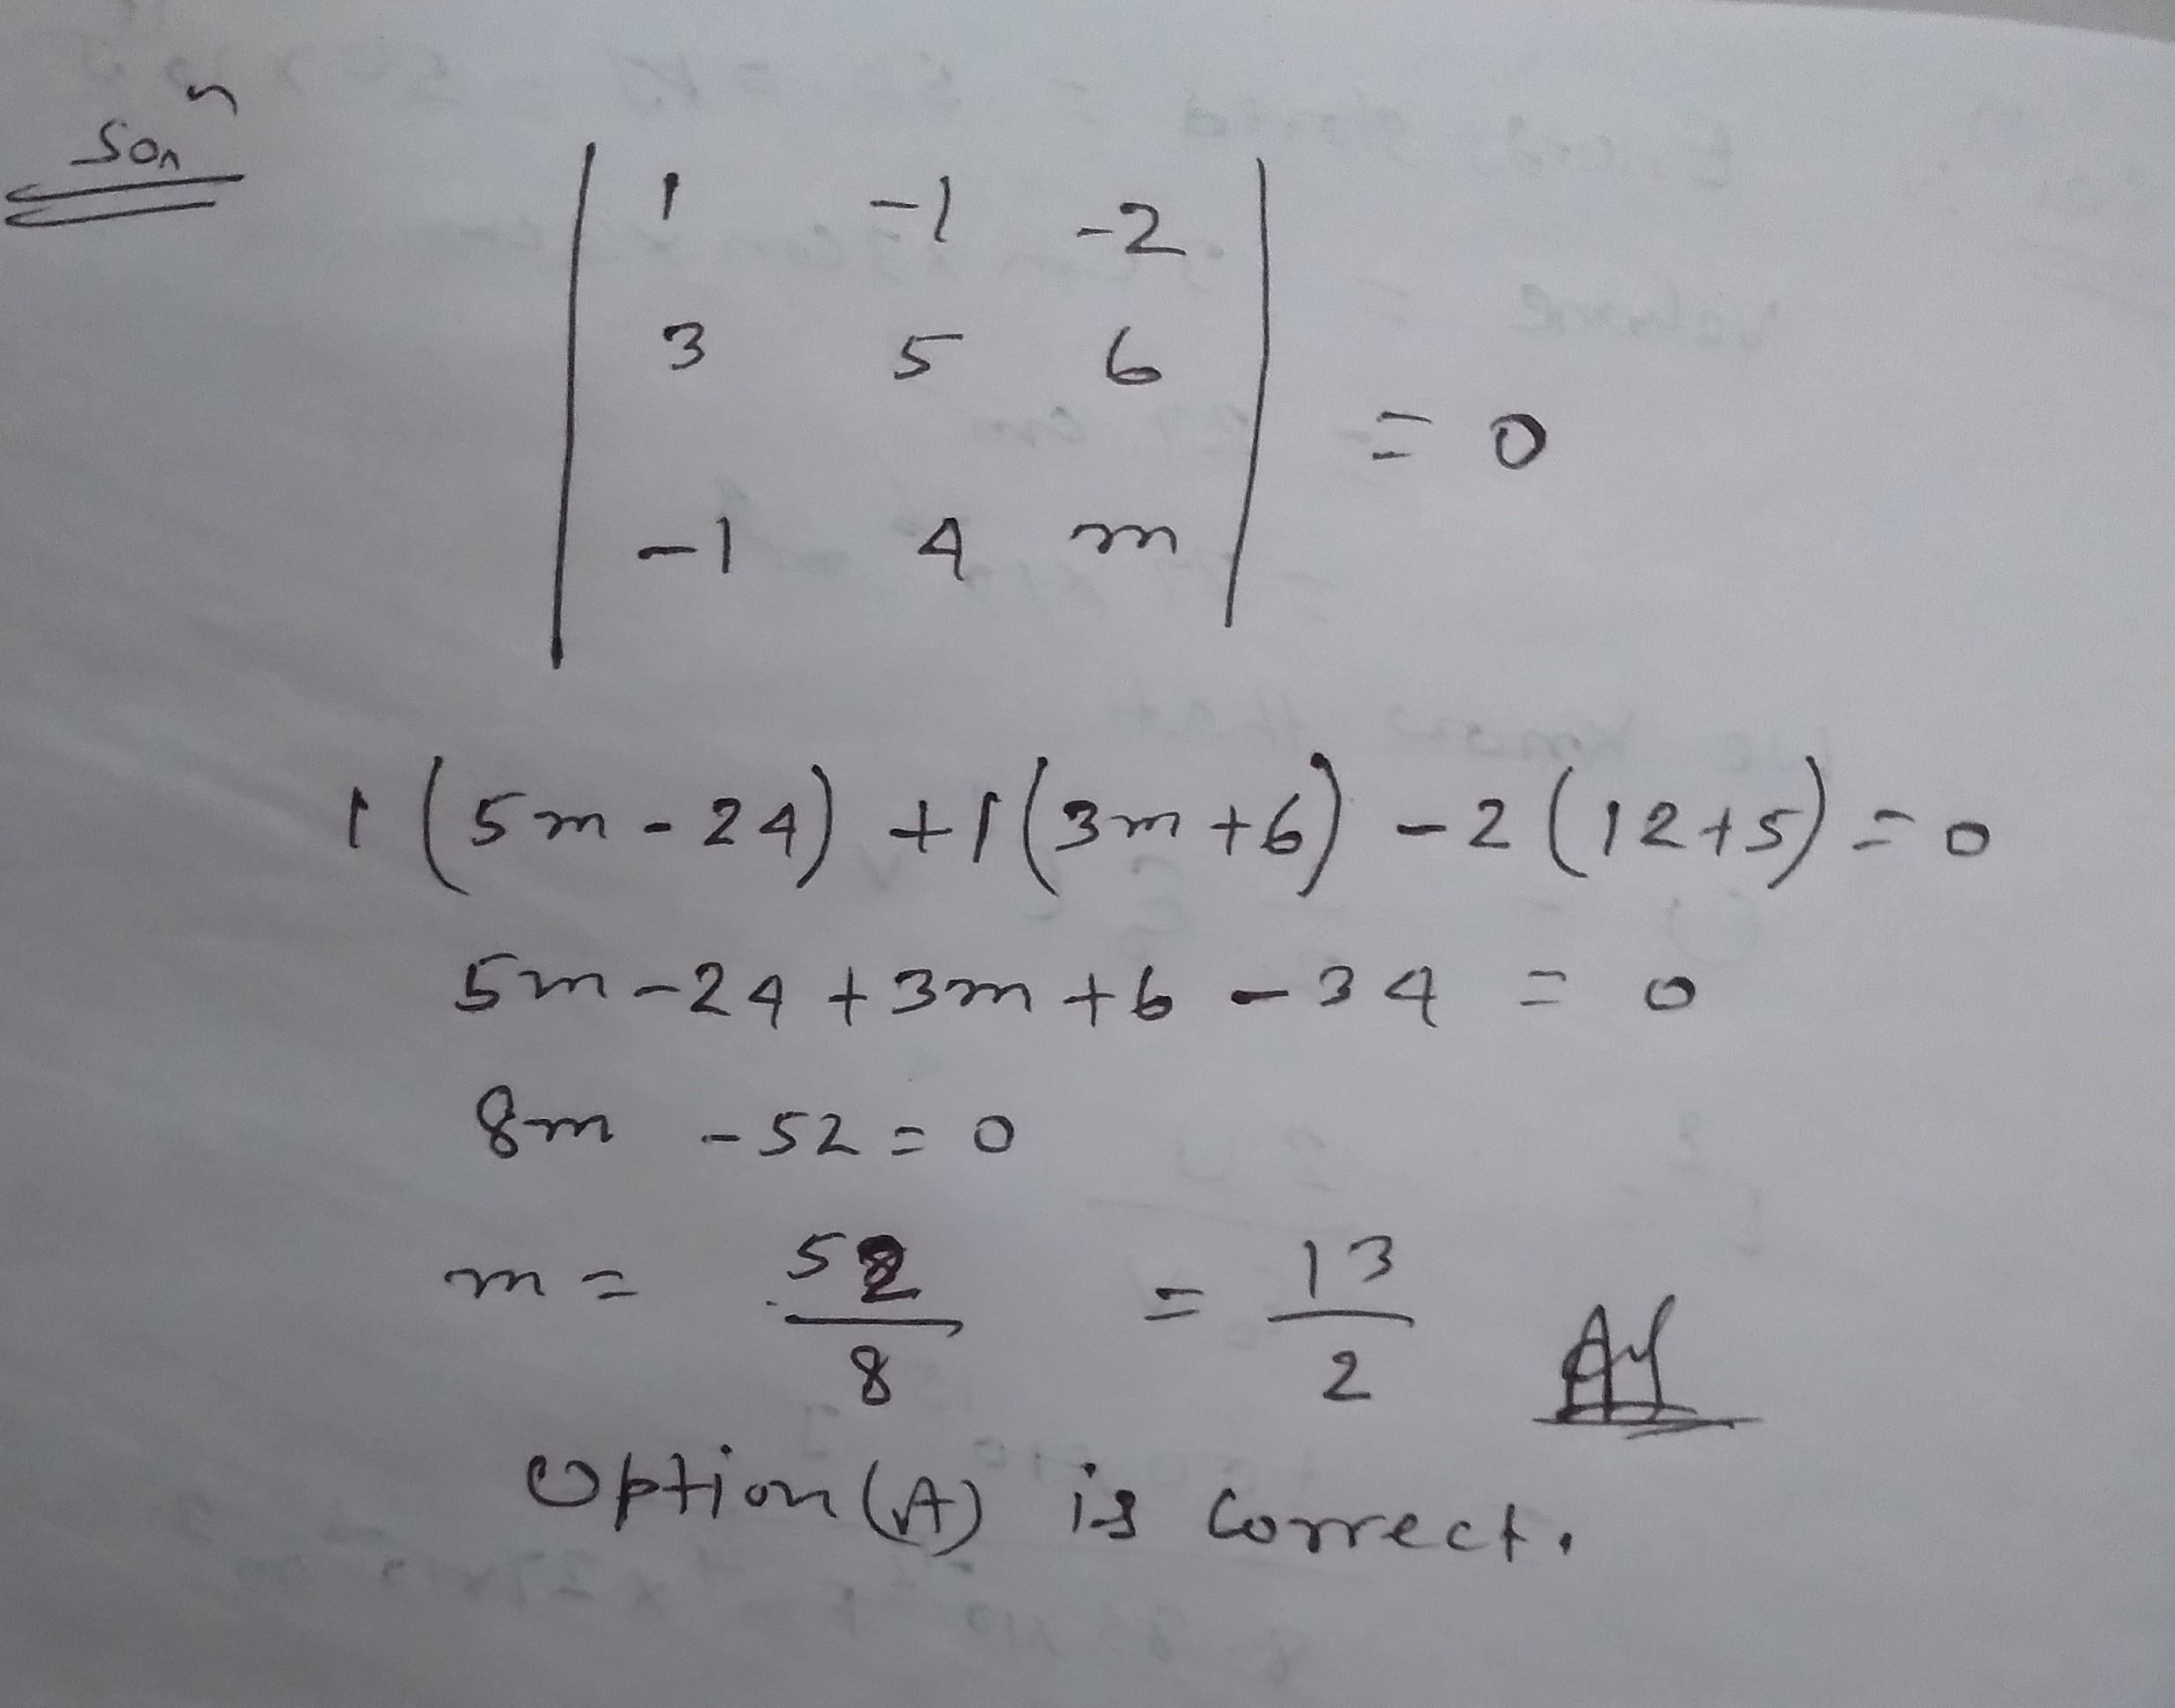 Son n
| 1 -1 -2 |
| 3 5 6 | = 0
| -1 4 m |
1 (5m - 24) + 1 (3m + 6) - 2 (12 + 5) = 0
5m - 24 + 3m + 6 - 34 = 0
8m - 52 = 0
m = 52/8 = 13/2
Option (A) is correct.